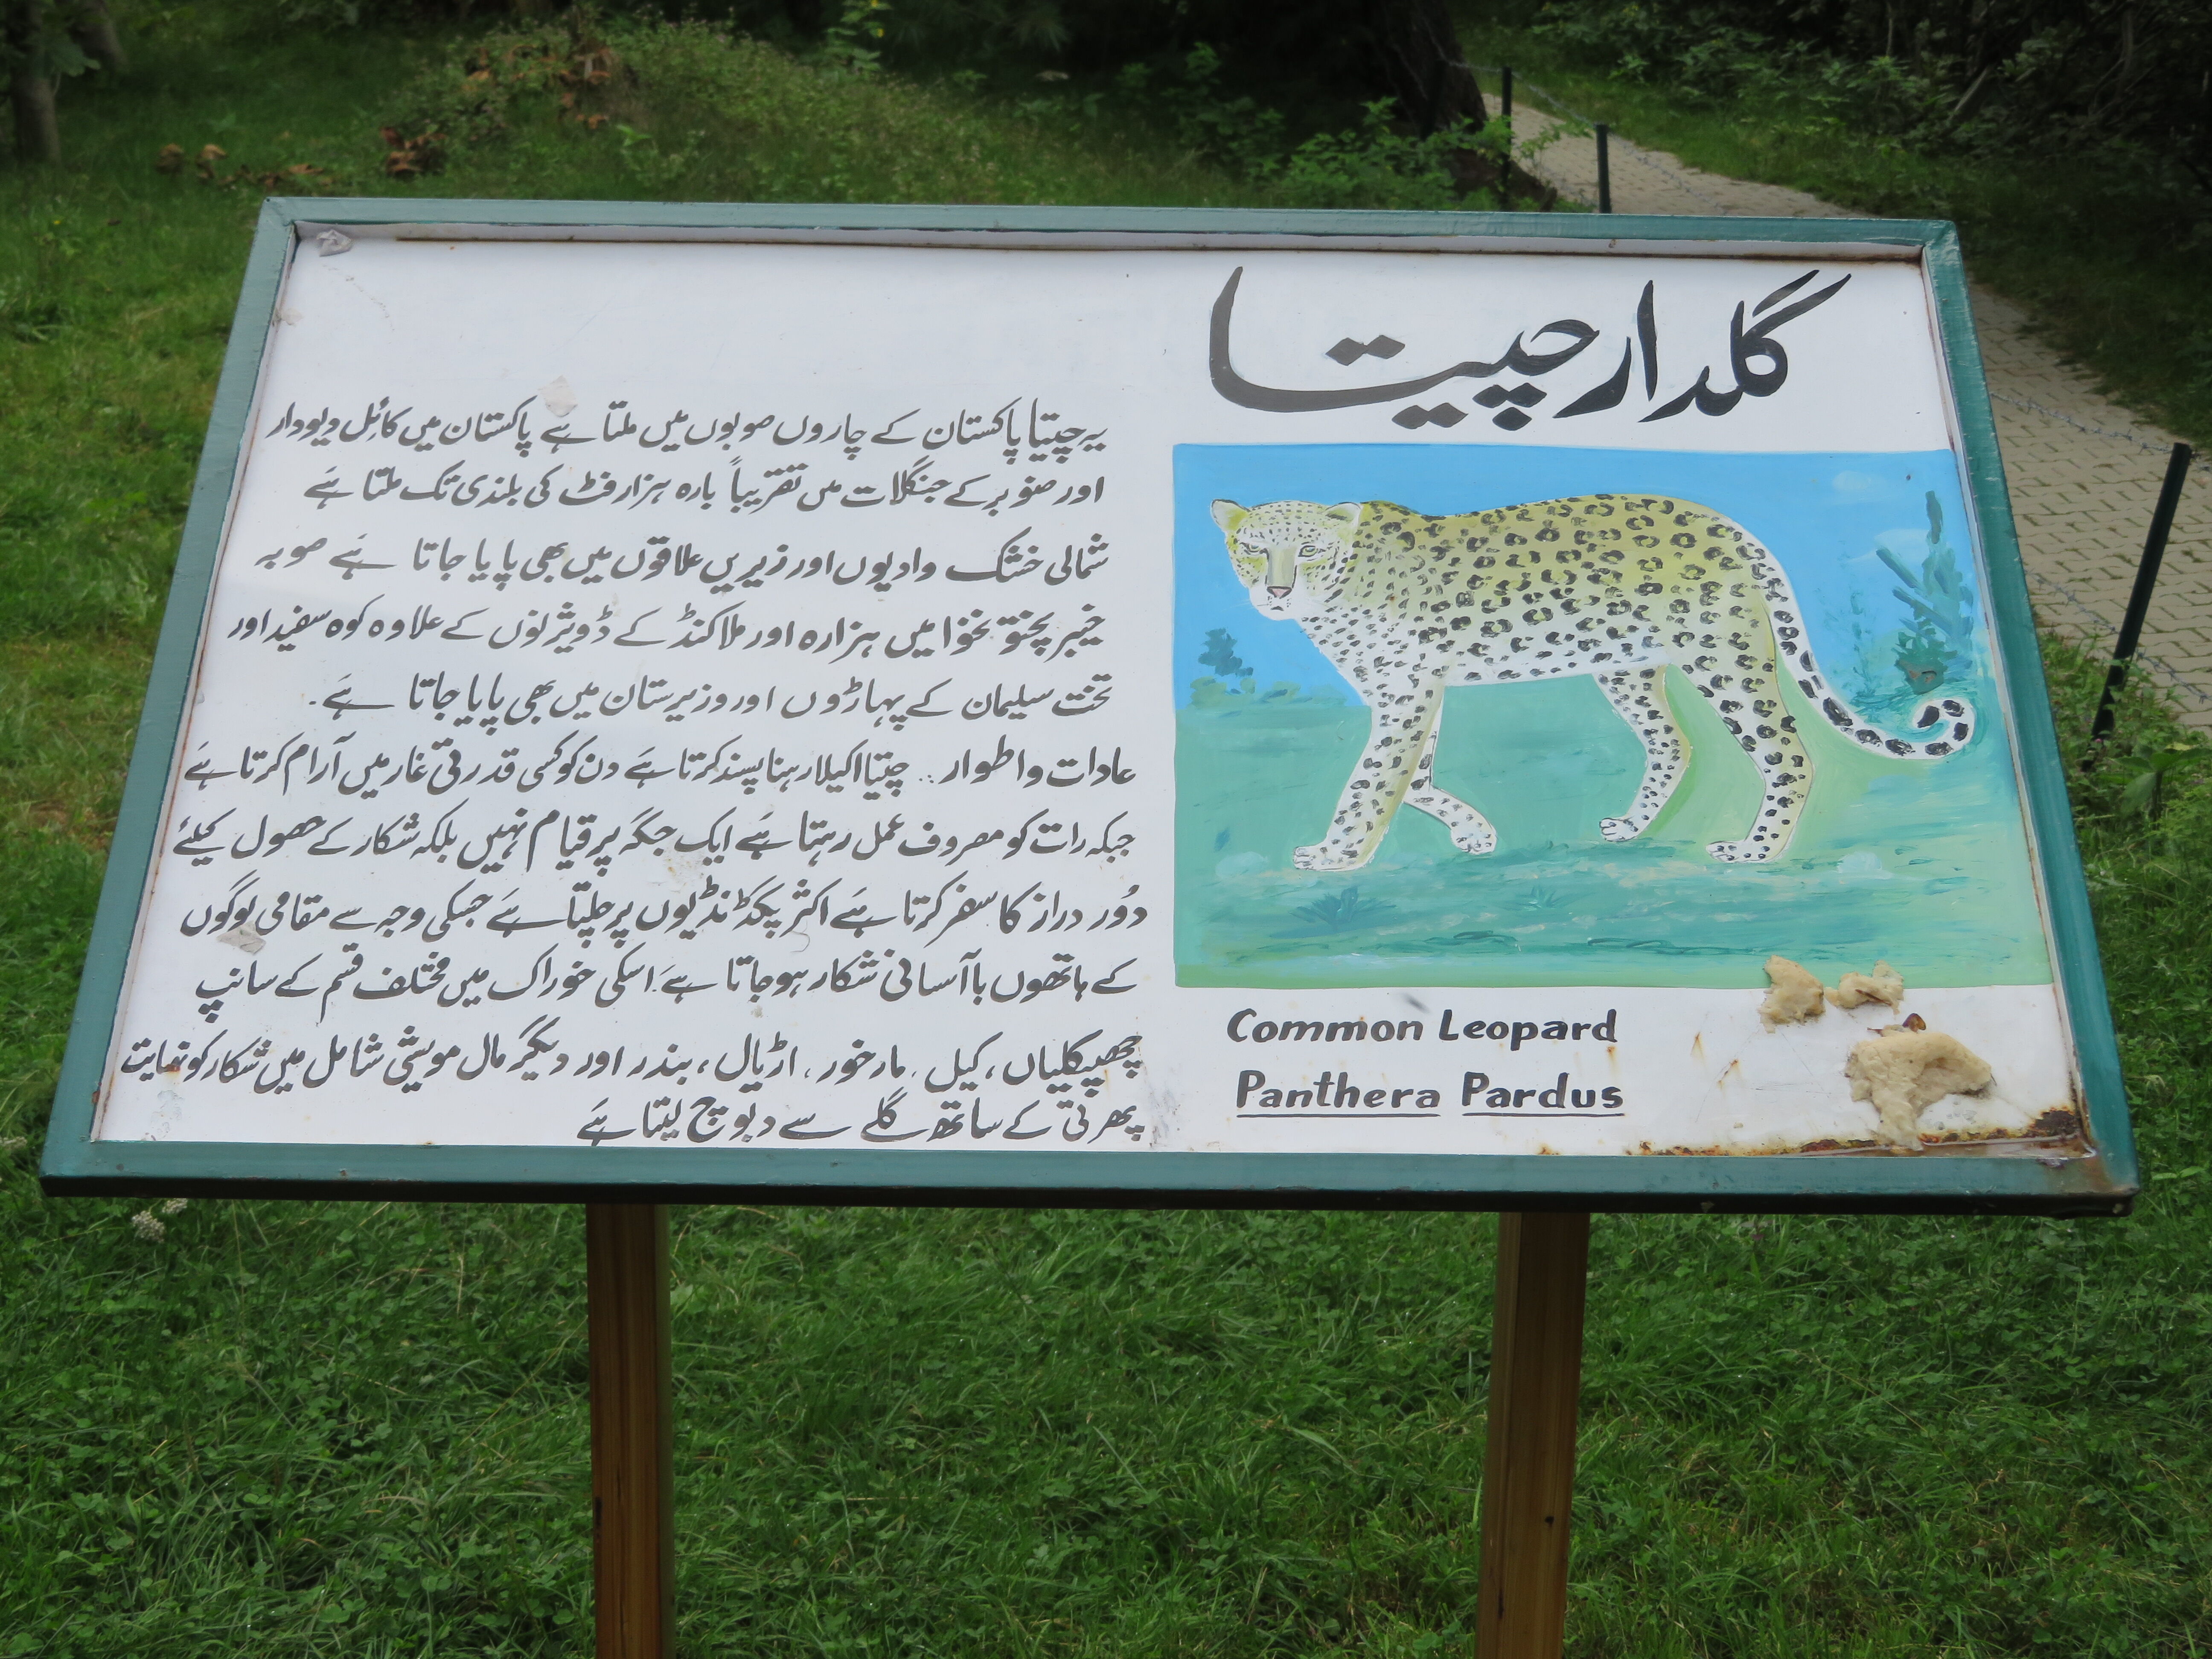 گلدار چیتا
یہ چیتا پاکستان کے چاروں صوبوں میں ملتا ہے پاکستان میں کائل دیودار
اور صنوبر کے جنگلات میں تقریباً بارہ ہزار فٹ کی بلندی تک ملتا ہے
شمالی خشک وادیوں اور زیریں علاقوں میں بھی پایا جاتا ہے صوبہ
خیبر پختونخوا میں ہزارہ اور ملاکنڈ کے ڈویژنوں کے علاوہ کوہ سفید اور
تخت سلیمان کے پہاڑوں اور وزیرستان میں بھی پایا جاتا ہے۔
عادات و اطوار .. چیتا اکیلا رہنا پسند کرتا ہے دن کو کسی قدرتی غار میں آرام کرتا ہے
جبکہ رات کو مصروف عمل رہتا ہے ایک جگہ پر قیام نہیں بلکہ شکار کے حصول کیلئے
دُور دراز کا سفر کرتا ہے اکثر پگڈنڈیوں پر چلتا ہے جسکی وجہ سے مقامی لوگوں
کے ہاتھوں باآسانی شکار ہو جاتا ہے۔ اسکی خوراک میں مختلف قسم کے سانپ
چھپکلیاں، کیل، مارخور، اڑیال، بندر اور دیگر مال مویشی شامل ہیں شکار کو نہایت
پھرتی کے ساتھ گلے سے دبوچ لیتا ہے
Common Leopard
Panthera Pardus